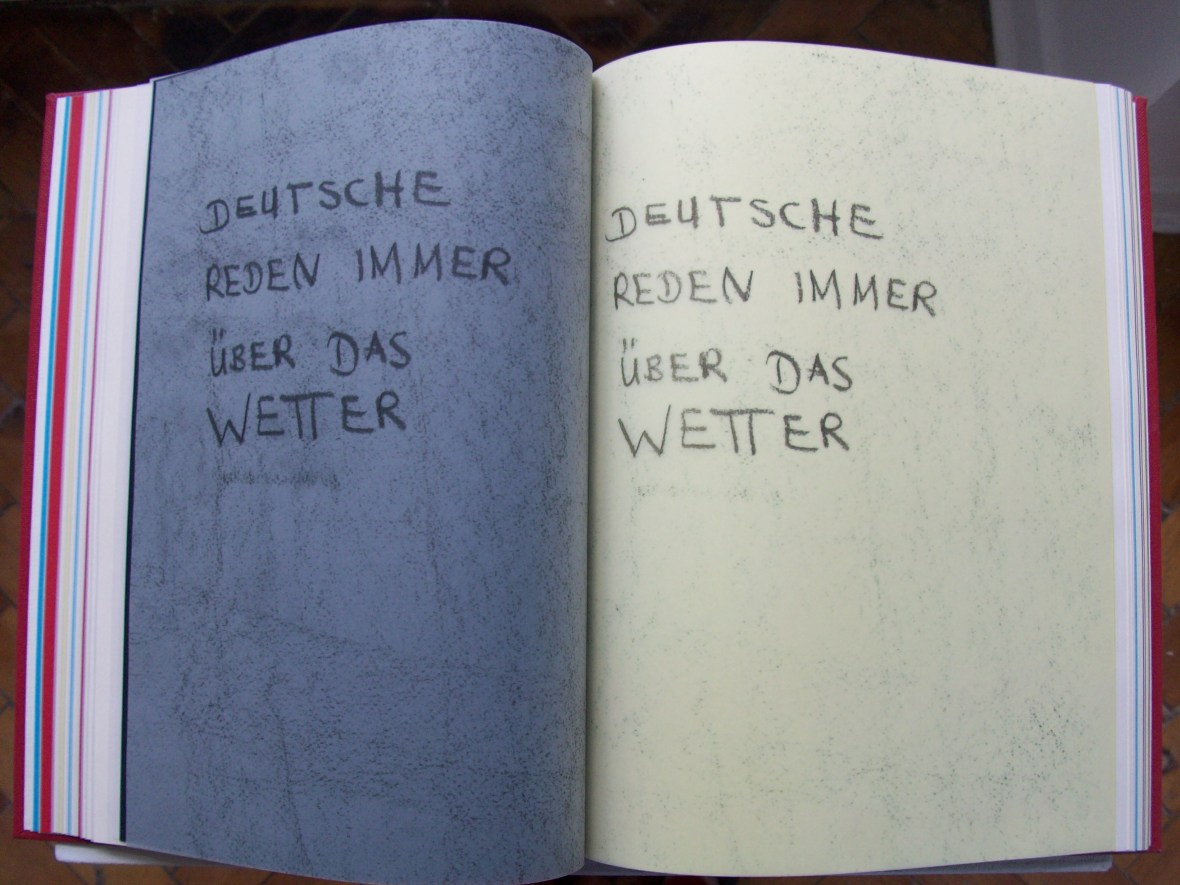 DEUTSCHE
REDEN IMMER
ÜBER DAS
WETTER
DEUTSCHE
REDEN IMMER
ÜBER DAS
WETTER